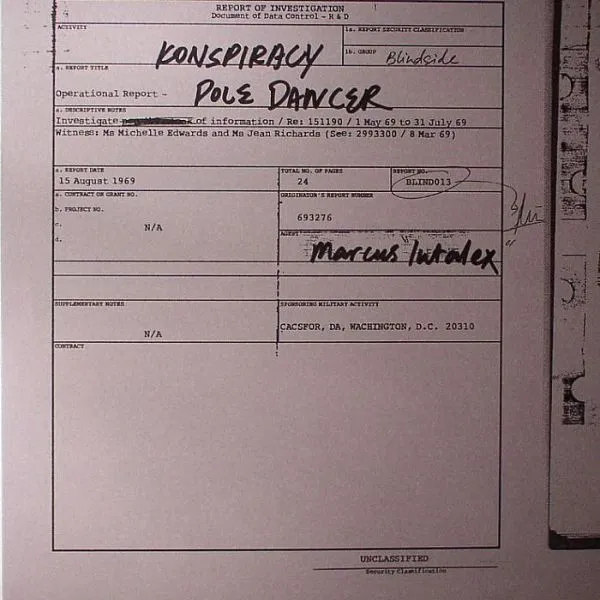 REPORT OF INVESTIGATION
Document of Data Control - R & D
ACTIVITY
1a. REPORT SECURITY CLASSIFICATION
KONSPIRACY
1b. GROUP
Blindside
a. REPORT TITLE
Operational Report -
POLE DANCER
a. DESCRIPTIVE NOTES
Investigate of information / Re: 151190 / 1 May 69 to 31 July 69
Witness: Ms Michelle Edwards and Ms Jean Richards (See: 2993300 / 8 Mar 69)
a. REPORT DATE
15 August 1969
TOTAL NO. OF PAGES
24
REPORT NO.
BLIND013
a. CONTRACT OR GRANT NO.
b. PROJECT NO.
c.
N/A
d.
ORIGINATOR'S REPORT NUMBER
693276
AGENT
Marcus Intalex
SUPPLEMENTARY NOTES
N/A
SPONSORING MILITARY ACTIVITY
CACSFOR, DA, WACHINGTON, D.C. 20310
CONTRACT
UNCLASSIFIED
Security Classification